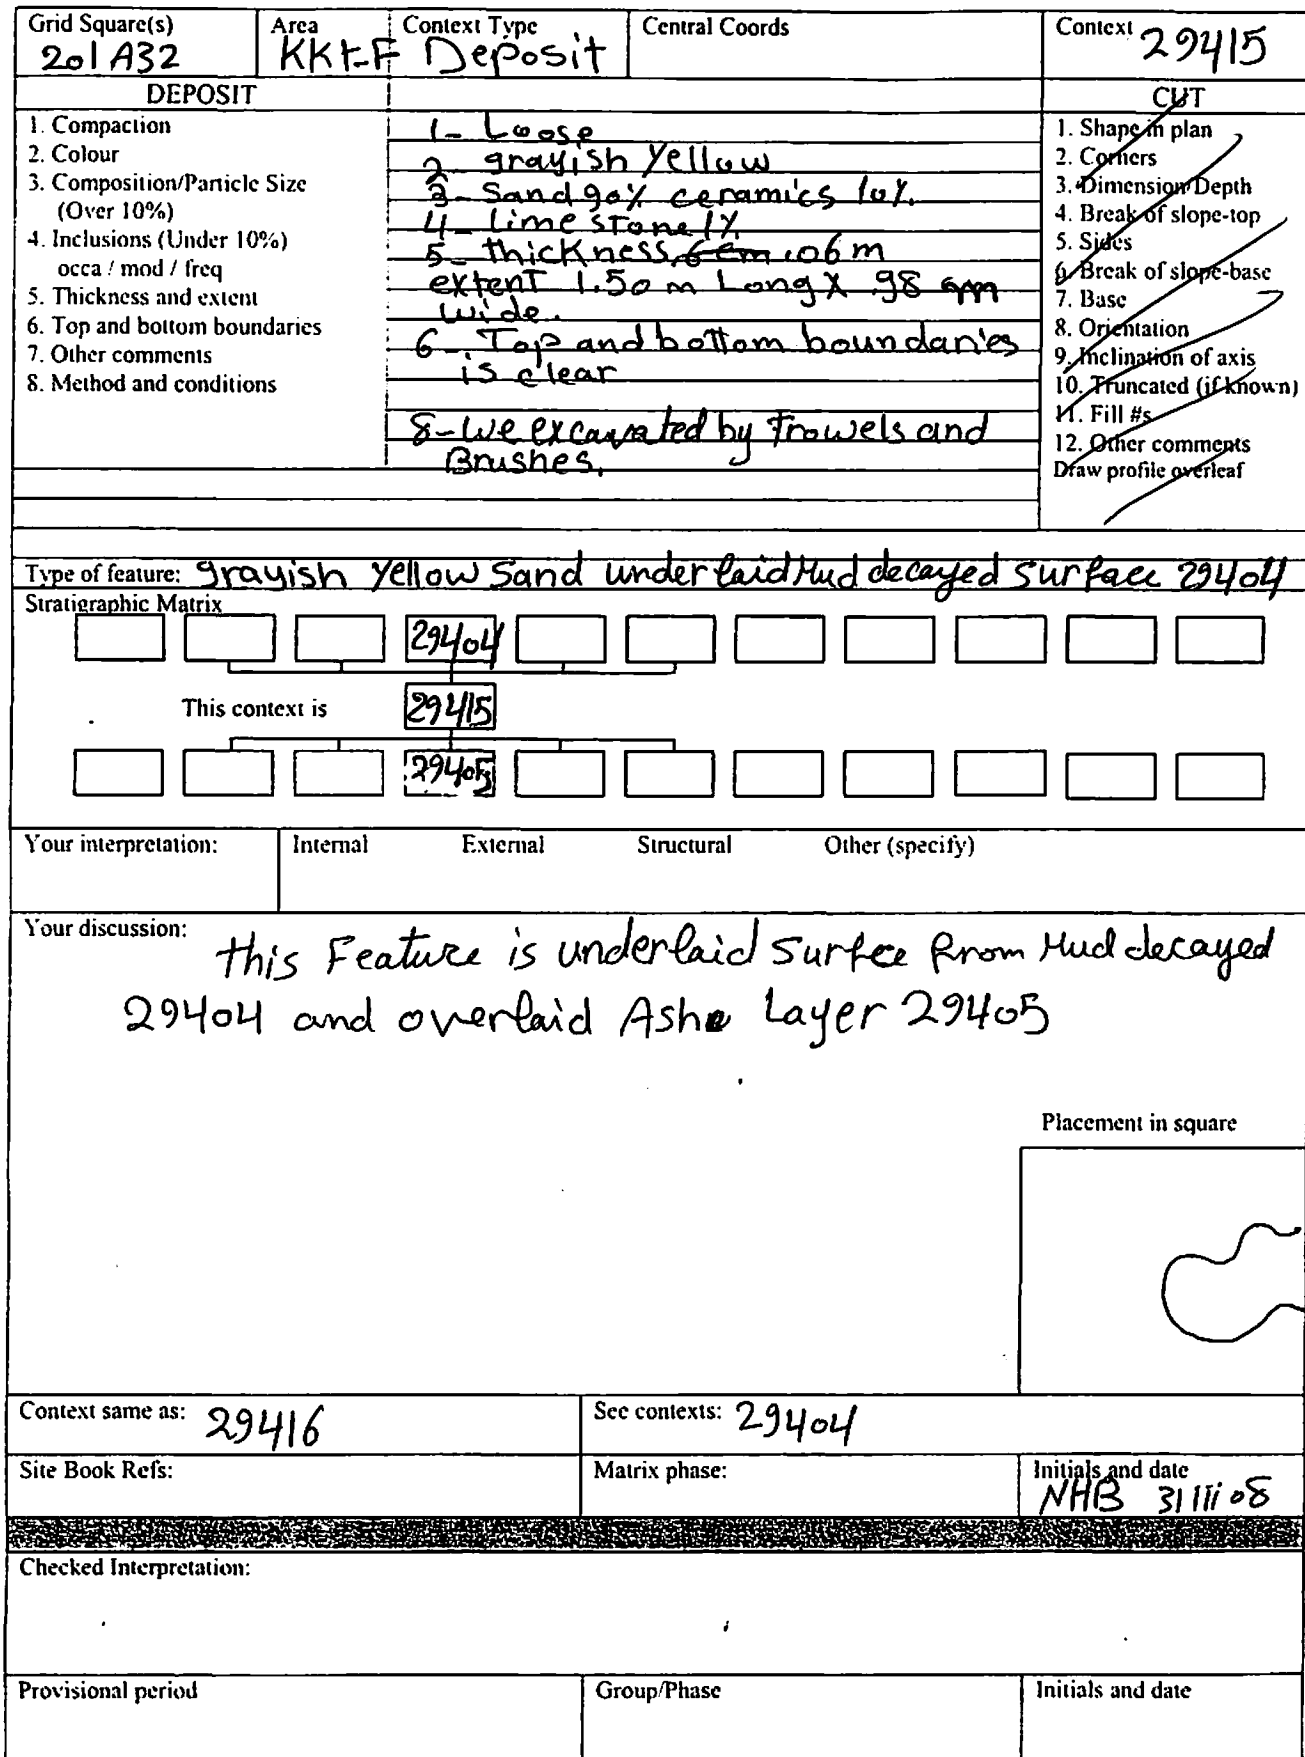 Grid Square(s) Area Context Type Central Coords Context
201 A32 KKT-F Deposit 29415
DEPOSIT CUT
1. Compaction
2. Colour
3. Composition/Particle Size
(Over 10%)
4. Inclusions (Under 10%)
occa / mod / freq
5. Thickness and extent
6. Top and bottom boundaries
7. Other comments
8. Method and conditions
1- Loose
2- grayish Yellow
3- Sand 90% ceramics 10%.
4- lime stone 1%
5- thickness 6cm .06 m
extent 1.50 m Long X .98 m
wide.
6- Top and bottom boundaries
is clear
8- we excavated by Trowels and
Brushes.
1. Shape in plan
2. Corners
3. Dimension/Depth
4. Break of slope-top
5. Sides
6. Break of slope-base
7. Base
8. Orientation
9. Inclination of axis
10. Truncated (if known)
11. Fill #s
12. Other comments
Draw profile overleaf
Type of feature: grayish yellow Sand underlaid Mud decayed surface 29404
Stratigraphic Matrix
29404
This context is 29415
29405
Your interpretation: Internal External Structural Other (specify)
Your discussion:
this Feature is underlaid Surfce from Mud decayed
29404 and overlaid Ash Layer 29405
Placement in square
Context same as: 29416 See contexts: 29404
Site Book Refs: Matrix phase: Initials and date
NHB 31 III 08
Checked Interpretation:
Provisional period Group/Phase Initials and date